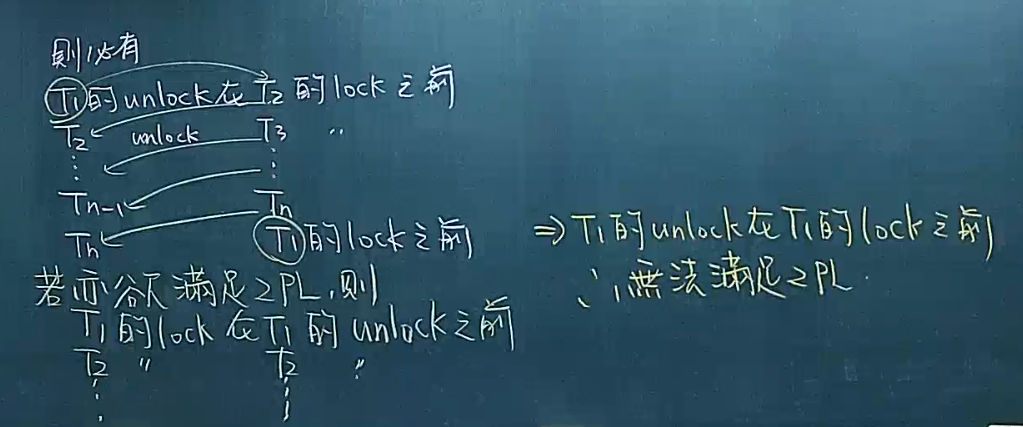 則必有
T1的unlock在T2的lock之前
T2 unlock T3 〃
⋮ ⋮
Tn-1 Tn
Tn T1的lock之前
若亦欲滿足2PL,則
T1的lock在T1的unlock之前
T2 〃 T2 〃
⋮ ⋮
⇒T1的unlock在T1的lock之前
∴無法滿足2PL.